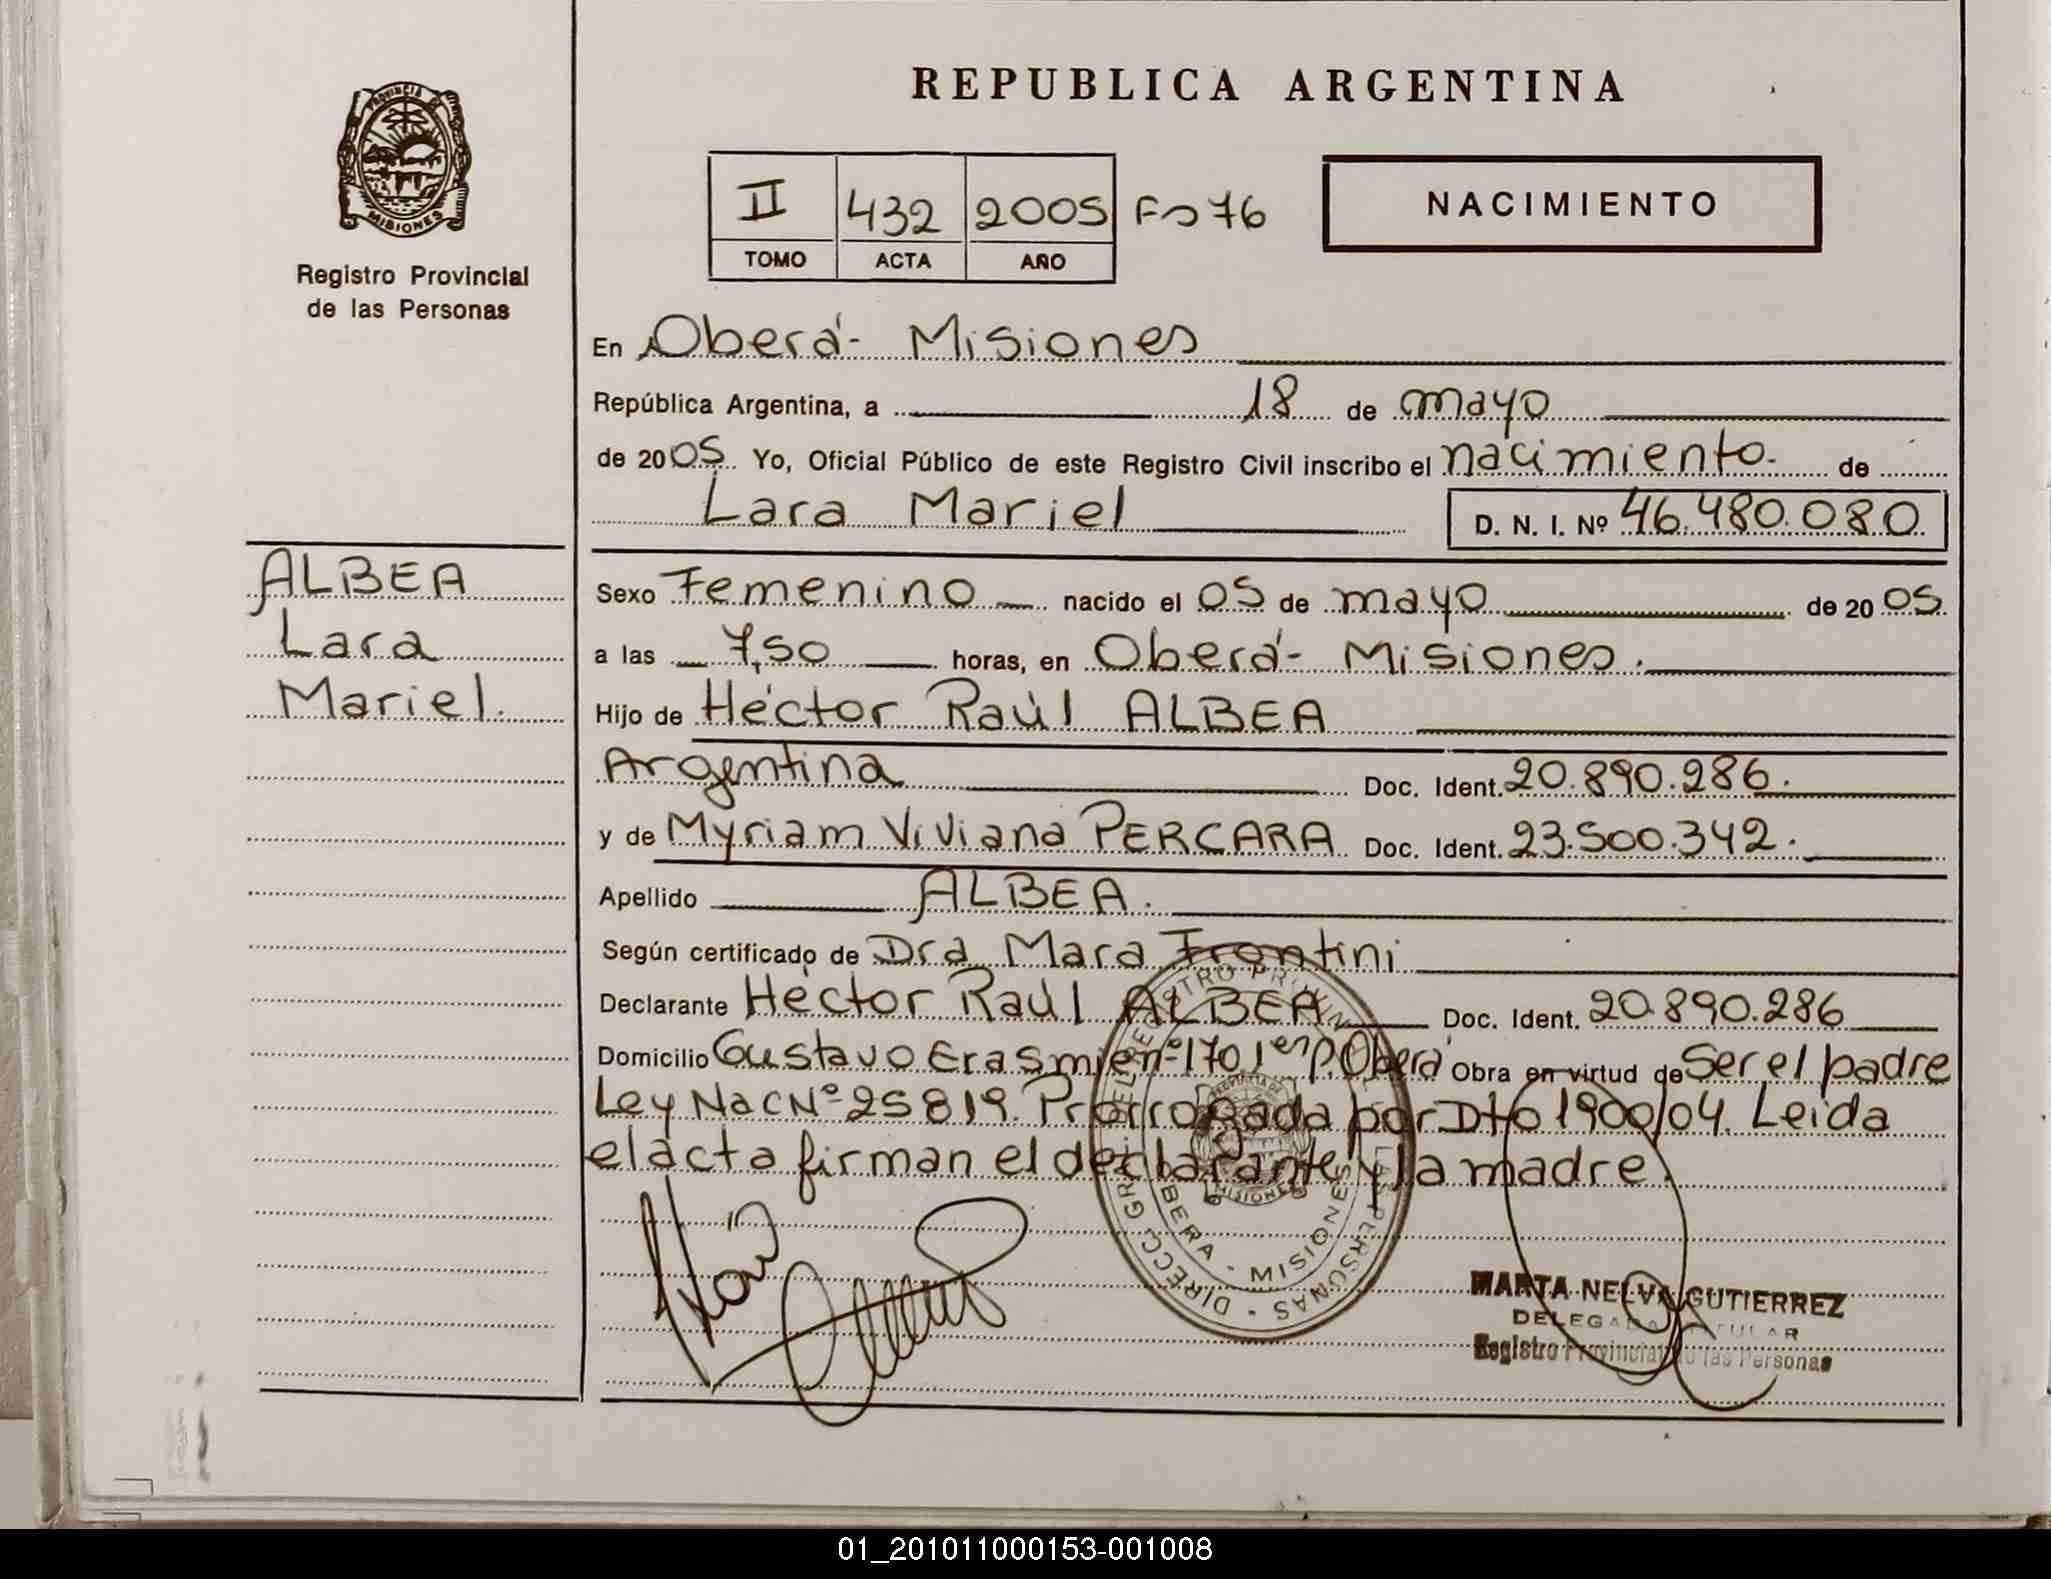 REPUBLICA ARGENTINA
PROVINCIA DE
MISIONES
Registro Provincial
de las Personas
II 432 2005 Fº 76
TOMO ACTA AÑO
NACIMIENTO
En Oberá- Misiones
República Argentina, a 18 de mayo
de 2005 Yo, Oficial Público de este Registro Civil inscribo el nacimiento. de
Lara Mariel D. N. I. Nº 46.480.080
ALBEA
Lara
Mariel.
Sexo Femenino nacido el 05 de mayo de 2005
a las 7,50 horas, en Oberá- Misiones.
Hijo de Héctor Raúl ALBEA
Argentina Doc. Ident. 20.890.286.
y de Myriam Viviana PERCARA Doc. Ident. 23.500.342.
Apellido ALBEA.
Según certificado de Dra Mara Frontini
Declarante Héctor Raúl ALBEA Doc. Ident. 20.890.286
Domicilio Gustavo Erasmie nº 170 1er P. Oberá Obra en virtud de Ser el padre
Ley Nac Nº 25819. Prorrogada por Dto 1900/04. Leida
el acta firman el declarante y la madre.
OBERA - MISIONES
MARTA NELVA GUTIERREZ
DELEGADA TITULAR
Registro Provincial de las Personas
01_201011000153-001008